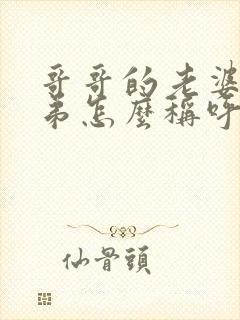 哥哥的老婆
弟怎麼稱呼
仙骨頭